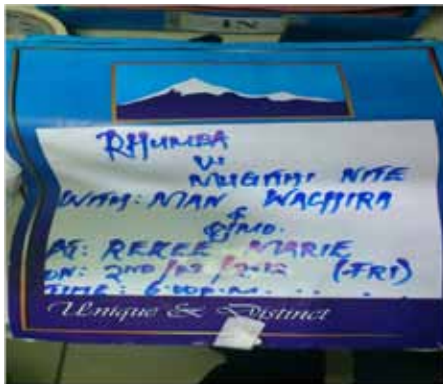 RHUMBA
V
MUGITHI NITE
WITH: MAN WACHIRA
&
AT: REKEE MARIE
ON: 2ND / /2012 (FRI)
TIME: 6:00P.M.
Unique & Distinct